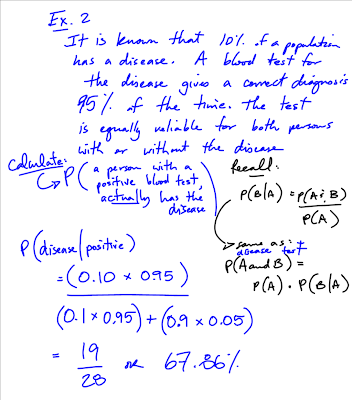 Ex. 2
It is known that 10% of a population
has a disease. A blood test for
the disease gives a correct diagnosis
95% of the time. The test
is equally reliable for both persons
with or without the disease
Calculate:
P(a person with a
positive blood test,
actually has the
disease)
Recall:
P(B|A) = P(A & B)
P(A)
same as:
disease test +
P(A and B) =
P(A) · P(B|A)
P(disease/positive)
= (0.10 × 095)
(0.1 × 0.95) + (0.9 × 0.05)
= 19
28 or 67.86%